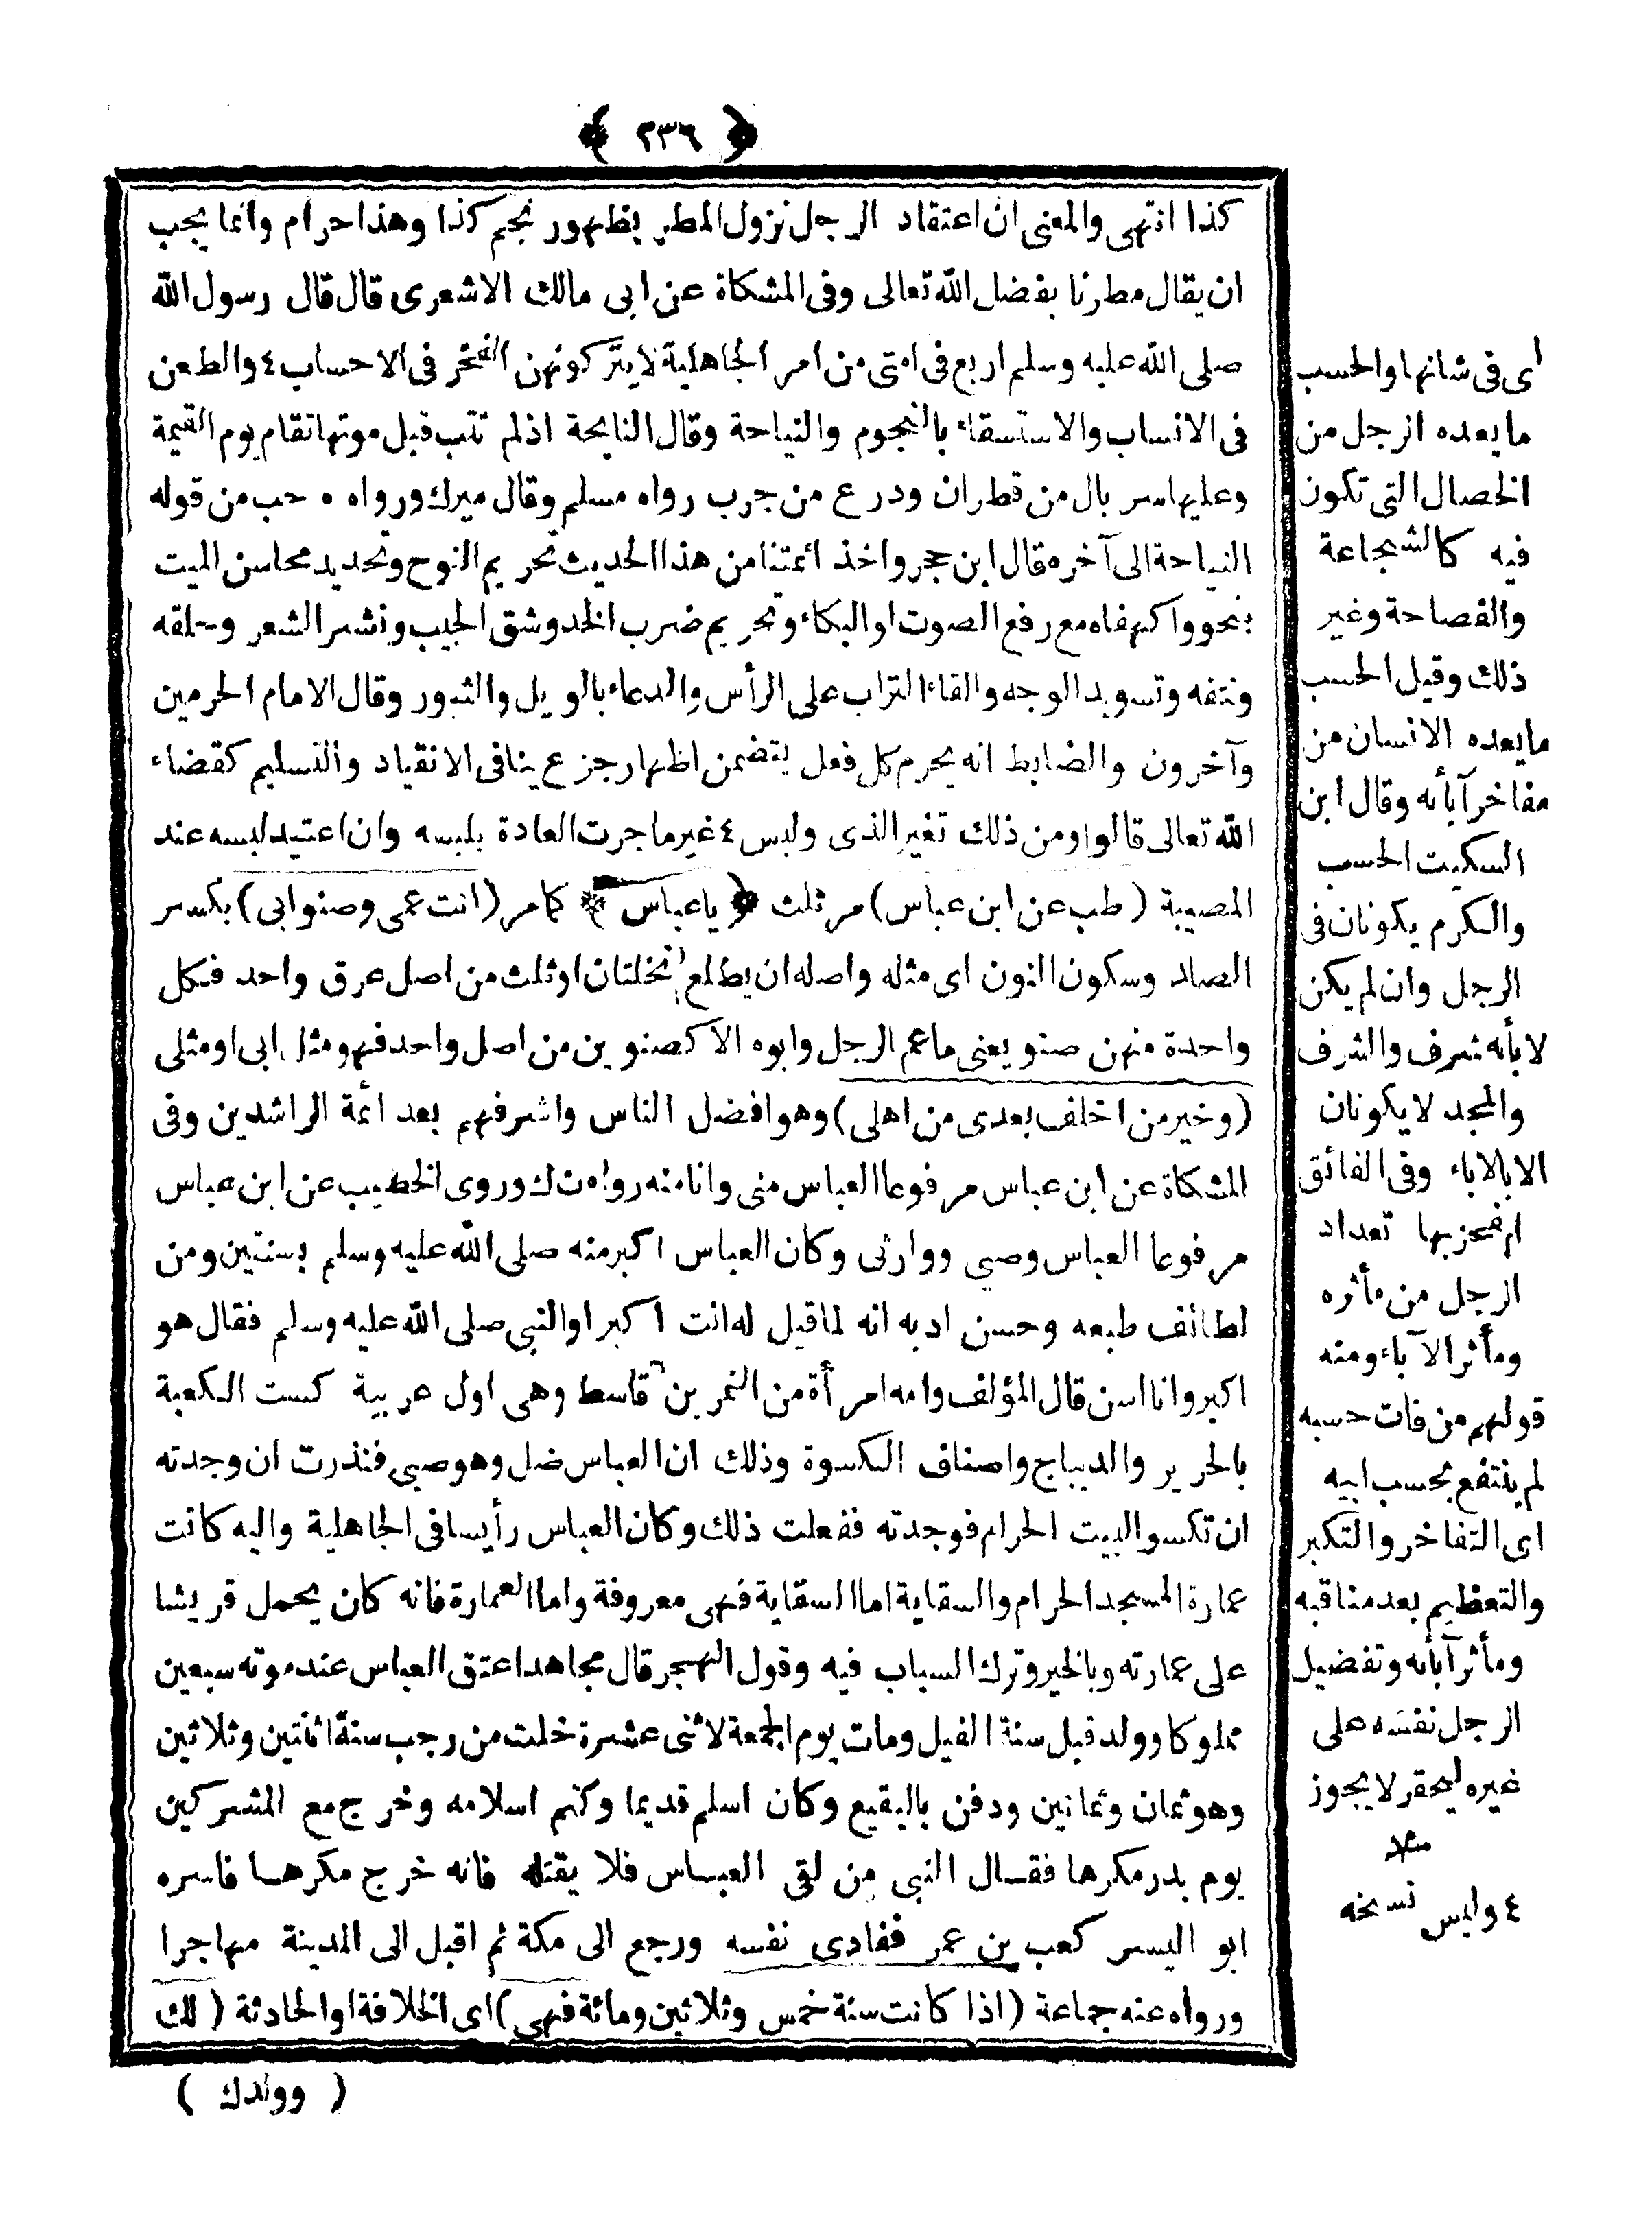 ﴿ ٢٣٦ ﴾
كذا انتهى والمعنى ان اعتقاد الرجل نزول المطر بظهور نجم كذا وهذا حرام وانما يجب
ان يقال مطرنا بفضل الله تعالى وفى المشكاة عن ابى مالك الاشعرى قال قال رسول الله
صلى الله عليه وسلم اربع فى امتى من امر الجاهلية لا يتركونهن الفخر فى الاحساب ٤ والطعن
فى الانساب والاستسقاء بالنجوم والنياحة وقال النايحة اذا لم تتب قبل موتها تقام يوم القيمة
وعليها سربال من قطران ودرع من جرب رواه مسلم وقال ميرك ورواه ه حب من قوله
النياحة الى آخره قال ابن حجر واخذ ائمتنا من هذا الحديث تحريم النوح وتحديد محاسن الميت
بنحو واكهفاه مع رفع الصوت او البكاء وتحريم ضرب الخد وشق الجيب ونشر الشعر وحلقه
ونتفه وتسويد الوجه والقاء التراب على الرأس والدعاء بالويل والثبور وقال الامام الحرمين
وآخرون والضابط انه يحرم كل فعل يتضمن اظهار جزع ينافى الانقياد والتسليم كقضاء
الله تعالى قالوا ومن ذلك تغير الذى ولبس ٤ غير ما جرت العادة بلبسه وان اعتيد لبسه عند
المصيبة (طب عن ابن عباس) مر ثلث ﴿ يا عباس ﴾ كامر (انت عمى وصنو ابى) بكسر
الصاد وسكون النون اى مثله واصله ان يطلع نخلتان او ثلث من اصل عرق واحد فكل
واحدة منهن صنو يعنى ما عم الرجل وابوه الا كصنوين من اصل واحد فهو مثل ابى او مثلى
(وخير من اخلف بعدى من اهلى) وهو افضل الناس واشرفهم بعد ائمة الراشدين وفى
المشكاة عن ابن عباس مرفوعا العباس منى وانا منه رواه ت ك وروى الخطيب عن ابن عباس
مرفوعا العباس وصيى ووارثى وكان العباس اكبر منه صلى الله عليه وسلم بسنتين ومن
لطائف طبعه وحسن ادبه انه لما قيل له انت اكبر او النبى صلى الله عليه وسلم فقال هو
اكبر وانا اسن قال المؤلف وامه امرأة من النمر بن قاسط وهى اول عربية كست الكعبة
بالحرير والديباج واصناف الكسوة وذلك ان العباس ضل وهو صبى فنذرت ان وجدته
ان تكسو البيت الحرام فوجدته ففعلت ذلك وكان العباس رأيسا فى الجاهلية واليه كانت
عمارة المسجد الحرام والسقاية اما السقاية فهى معروفة واما العمارة فانه كان يحمل قريشا
على عمارته وبالخير وترك السباب فيه وقول الهجر قال مجاهد اعتق العباس عند موته سبعين
مملوكا وولد قبل سنة الفيل ومات يوم الجمعة لاثنى عشرة خلت من رجب سنة اثنتين وثلاثين
وهو ثمان وثمانين ودفن بالبقيع وكان اسلم قديما وكتم اسلامه وخرج مع المشركين
يوم بدر مكرها فقال النبى من لقى العباس فلا يقتله فانه خرج مكرها فاسره
ابو اليسر كعب بن عمر ففادى نفسه ورجع الى مكة ثم اقبل الى المدينة مهاجرا
ورواه عنه جماعة (اذا كانت سنة خمس وثلاثين ومائة فهى) اى الخلافة او الحادثة (لك
( وولدك )
اى فى شانها والحسب
ما يعده الرجل من
الخصال التى تكون
فيه كالشجاعة
والفصاحة وغير
ذلك وقيل الحسب
ما يعده الانسان من
مفاخر آبأئه وقال ابن
السكيت الحسب
والكرم يكونان فى
الرجل وان لم يكن
لابأئه شرف والشرف
والمجد لا يكونان
الا بالاباء وفى الفائق
تعداد
الرجل من مأثره
ومأثر الآباء ومنه
قولهم من فات حسبه
لم ينتفع بحسب ابيه
اى التفاخر والتكبر
والتعظيم بعد مناقبه
ومأثر آبأئه وتفضيل
الرجل نفسه على
غيره ليحقر لا يجوز
٤ وليس نسخه